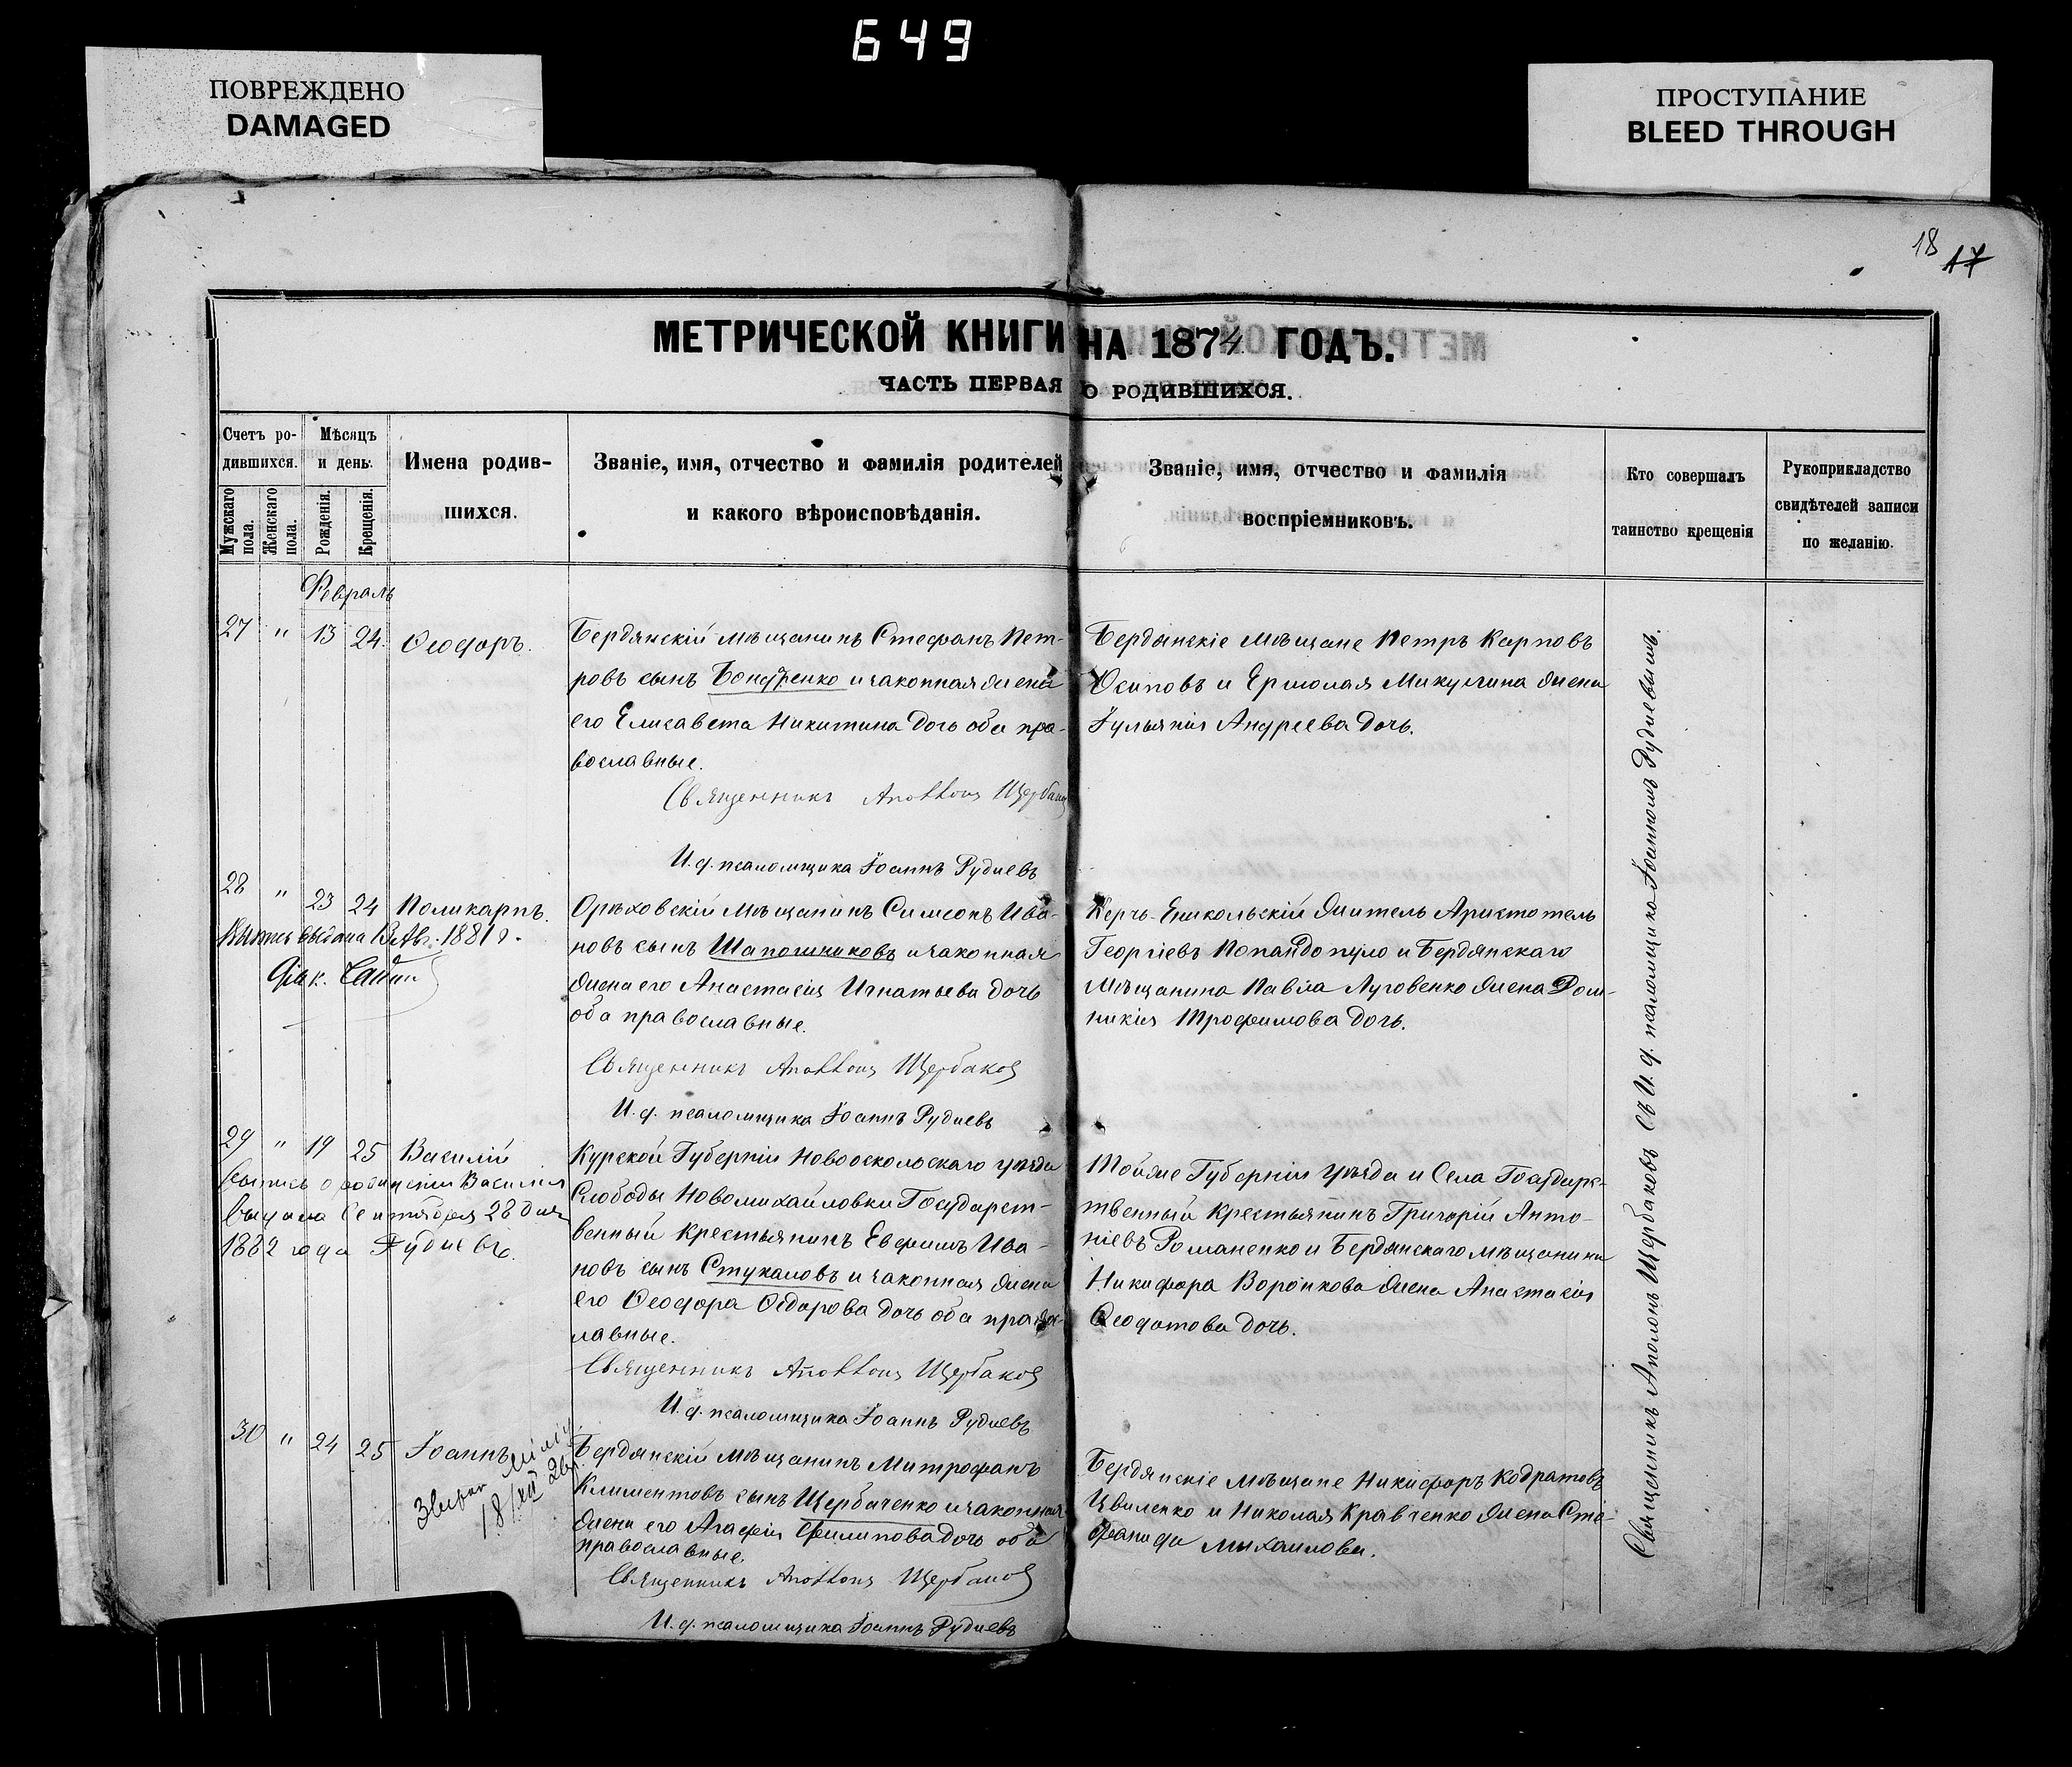 649
ПОВРЕЖДЕНО
DAMAGED
ПРОСТУПАНИЕ
BLEED THROUGH
18 17
МЕТРИЧЕСКОЙ КНИГИ НА 1874 ГОДЪ.
ЧАСТЬ ПЕРВАЯ О РОДИВШИХСЯ.
Счетъ ро-
дившихся.
Мужскаго пола.
Женскаго пола.
Мѣсяцъ
и день.
Рожденія.
Крещенія.
Имена родив-
шихся.
Званіе, имя, отчество и фамилія родителей
и какого вѣроисповѣданія.
Званіе, имя, отчество и фамилія
воспріемниковъ.
Кто совершалъ
таинство крещенія
Рукоприкладство
свидѣтелей записи
по желанію.
Февраль
27 " 13 24. Ѳеодоръ.
Бердянскій мѣщанинъ Стефанъ Пет-
ровъ сынъ Бондренко и законная жена
его Елисавета Никитина дочь оба пра-
вославные.
Священникъ Аполлонъ Щербаков
И. д. псаломщика Іоаннъ Рудиевъ
Бердянскіе мѣщане Петръ Карповъ
Осиповъ и Ермолая Микулина жена
Іульянія Андреева дочь.
28 " 23 24 Поликарпъ.
Выпись выдана 13 Авг. 1881 г.
Діак.
Орѣховскій мѣщанинъ Симеонъ Ива-
новъ сынъ Шапошниковъ и законная
жена его Анастасія Игнатьева дочь
оба православные.
Священникъ Аполлонъ Щербаков
И. д. псаломщика Іоаннъ Рудиевъ
Керчь-Еникольскій житель Аристотель
Георгіевъ Попандопуло и Бердянскаго
мѣщанина Павла Луговенко жена Дом-
никія Трофимова дочь.
29 " 19 25 Василій
Выпись о рождении Василия
выдана Сентября 28 дня
1882 года Рудиевъ.
Курской Губерніи Новооскольскаго уѣзда
Слободы Новомихайловки Государст-
венный крестьянинъ Евфимъ Ива-
новъ сынъ Стукаловъ и законная жена
его Ѳеодора Ѳедорова дочь оба правос-
лавные.
Священникъ Аполлонъ Щербаков
И. д. псаломщика Іоаннъ Рудиевъ
Той же Губерніи уѣзда и Села Государс-
твенный крестьянинъ Григорій Анто-
ніевъ Романенко и Бердянскаго мѣщанина
Никифора Воронкова жена Анастасія
Ѳеодотова дочь.
30 " 24 25 Іоаннъ
Бердянскій мѣщанинъ Митрофанъ
Климентовъ сынъ Щербаченко и законная
жена его Агафія Филипова дочь оба
православные.
Священникъ Аполлонъ Щербаков
И. д. псаломщика Іоаннъ Рудиевъ
Бердянскіе мѣщане Никифоръ Кодратовъ
Цвиленко и Николая Кравченко жена Сте-
фанида Михаилова.
Священникъ Аполонъ Щербаковъ съ И. д. псаломщика Іоанномъ Рудиевымъ.